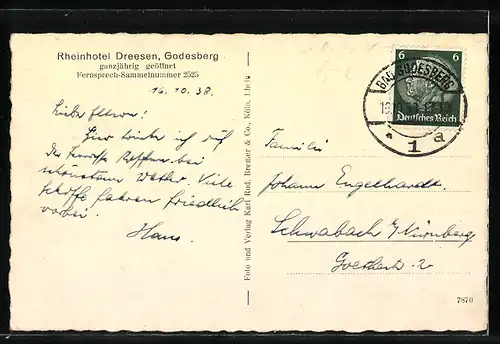 Rheinhotel Dreesen, Godesberg
ganzjährig geöffnet
Fernsprech-Sammelnummer 2525
16.10.38.
Liebe Eltern!
Hier trinke ich auf
der Terrasse Kaffee bei
schönstem Wetter. Viele
Schiffe fahren friedlich
vorbei.
Hans.
Foto und Verlag Karl Rud. Bremer & Co., Köln,
6 6
Deutsches Reich
BAD GODESBERG
* 1 a
Familie
Johann Engelhardt.
Schwabach b/Nürnberg
2
7870